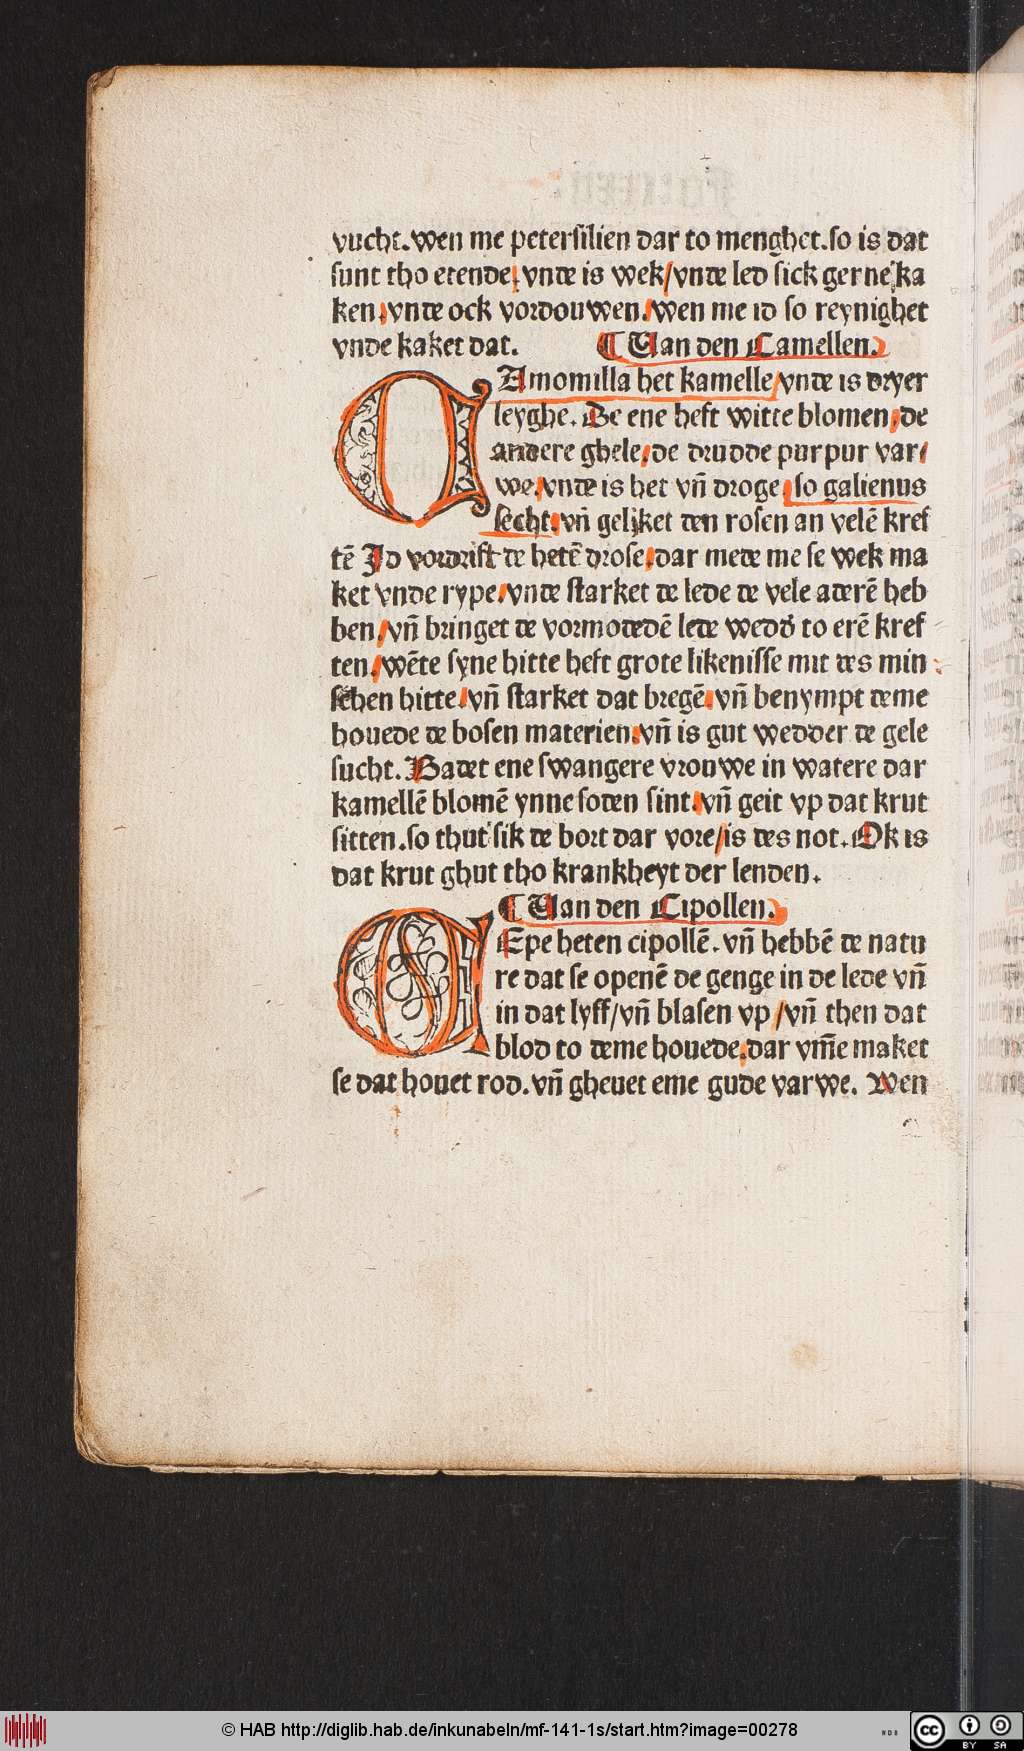 vucht.wen me petersilien dar to menghet.so is dat
sunt tho etende/vnde is wek/vnde led sick gerne ka
ken/vnde ock vordouwen/wen me id so reynighet
vnde kaket dat. ¶ Uan den Camellen.
CAmomilla het kamelle/vnde is dryer
leyghe. De ene heft witte blomen/de
andere ghele/de drudde purpur var/
we/vnde is het vñ droge/so galienus
secht/vñ gelijket den rosen an velē kref
tē Jd vordrift de hetē drose/dar mede me se wek ma
ket vnde rype/vnde starket de lede de vele aderē heb
ben/vñ bringet de vormodedē lede wedd' to erē kref
ten/wēte syne hitte heft grote likenisse mit des min
schen hitte/vñ starket dat bregē/vñ benympt deme
houede de bosen materien/vñ is gut wedder de gele
sucht. Badet ene swangere vrouwe in watere dar
kamellē blomē ynne soden sint/vñ geit vp dat krut
sitten.so thut sik de bort dar vore/is des not. Ok is
dat krut ghut tho krankheyt der lenden.
¶ Uan den Cipollen.
CEpe heten cipollē. vñ hebbē de natu
re dat se openē de genge in de lede vñ
in dat lyff/vñ blasen vp/vñ then dat
blod to deme houede/dar vm̄e maket
se dat houet rod. vñ gheuet eme gude varwe. Wen
© HAB http://diglib.hab.de/inkunabeln/mf-141-1s/start.htm?image=00278
WDB
cc BY SA